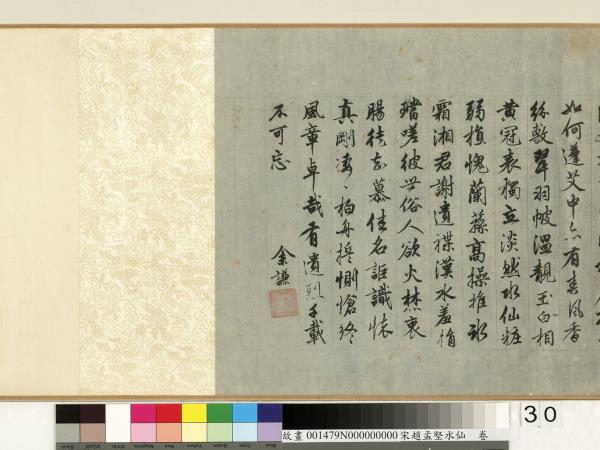 如何遽芟中亦有春風香
綠敷翠羽帔溫靚玉色相
黃冠表獨立淡然水仙粧
弱植愧蘭蓀高操摧氷
霜湘君謝遺褋漢水羞捐
璫嗟彼世俗人欲火焚衷
腸徒知慕佳名詎識懷
真剛淒、柏舟誓惻愴終
風章卓哉有遺烈千載
不可忘
余謙
30
故畫 001479N000000000 宋趙孟堅水仙 卷